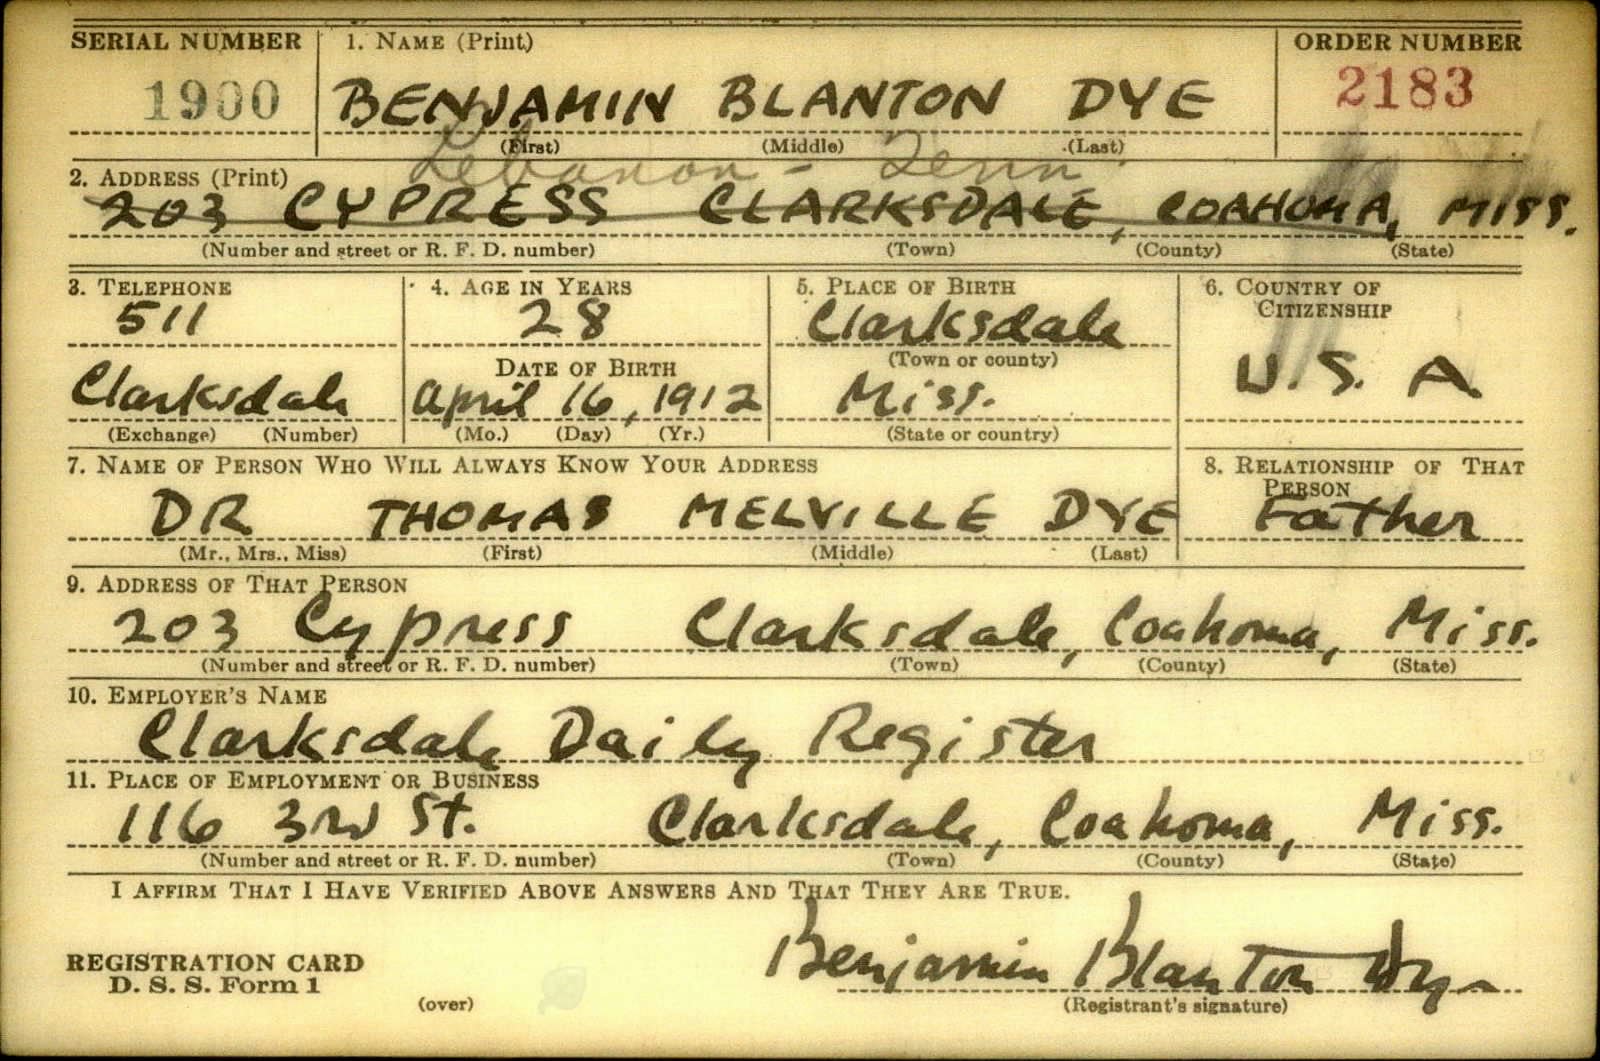 SERIAL NUMBER 1. NAME (Print) ORDER NUMBER
1900 BENJAMIN BLANTON DYE 2183
(First) (Middle) (Last)
Lebanon - Tenn
2. ADDRESS (Print)
203 CYPRESS CLARKSDALE, COAHOMA, MISS.
(Number and street or R. F. D. number) (Town) (County) (State)
3. TELEPHONE 4. AGE IN YEARS 5. PLACE OF BIRTH 6. COUNTRY OF
CITIZENSHIP
511 28 Clarksdale
DATE OF BIRTH (Town or county)
Clarksdale April 16, 1912 Miss. U.S.A
(Exchange) (Number) (Mo.) (Day) (Yr.) (State or country)
7. NAME OF PERSON WHO WILL ALWAYS KNOW YOUR ADDRESS 8. RELATIONSHIP OF THAT
PERSON
DR THOMAS MELVILLE DYE Father
(Mr., Mrs., Miss) (First) (Middle) (Last)
9. ADDRESS OF THAT PERSON
203 Cypress Clarksdale, Coahoma, Miss.
(Number and street or R. F. D. number) (Town) (County) (State)
10. EMPLOYER'S NAME
Clarksdale Daily Register
11. PLACE OF EMPLOYMENT OR BUSINESS
116 3rd St. Clarksdale, Coahoma, Miss.
(Number and street or R. F. D. number) (Town) (County) (State)
I AFFIRM THAT I HAVE VERIFIED ABOVE ANSWERS AND THAT THEY ARE TRUE.
REGISTRATION CARD Benjamin Blanton Dye
D. S. S. Form 1
(over) (Registrant's signature)